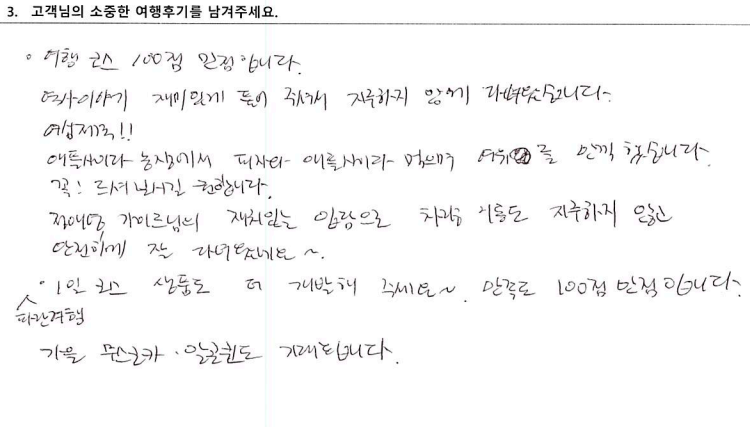 3. 고객님의 소중한 여행후기를 남겨주세요.
◦ 여행 코스 100점 만점입니다.
역사이야기 재미있게 들어 주셔서 지루하지 않게 다녀왔습니다.
애플사이다 농장에서 피자와 애플사이다 먹으며 여유를 만끽 했습니다.
꼭! 드셔보시길 권합니다.
가이드님의 재치있는 입담으로 차량 이동도 지루하지 않고
안전하게 잘 다녀왔네요~.
◦ 1일 코스 상품도 더 개발해 주세요~ 만족도 100점 만점 입니다.
가을 무스코카 · 알곤퀸도 기대됩니다.